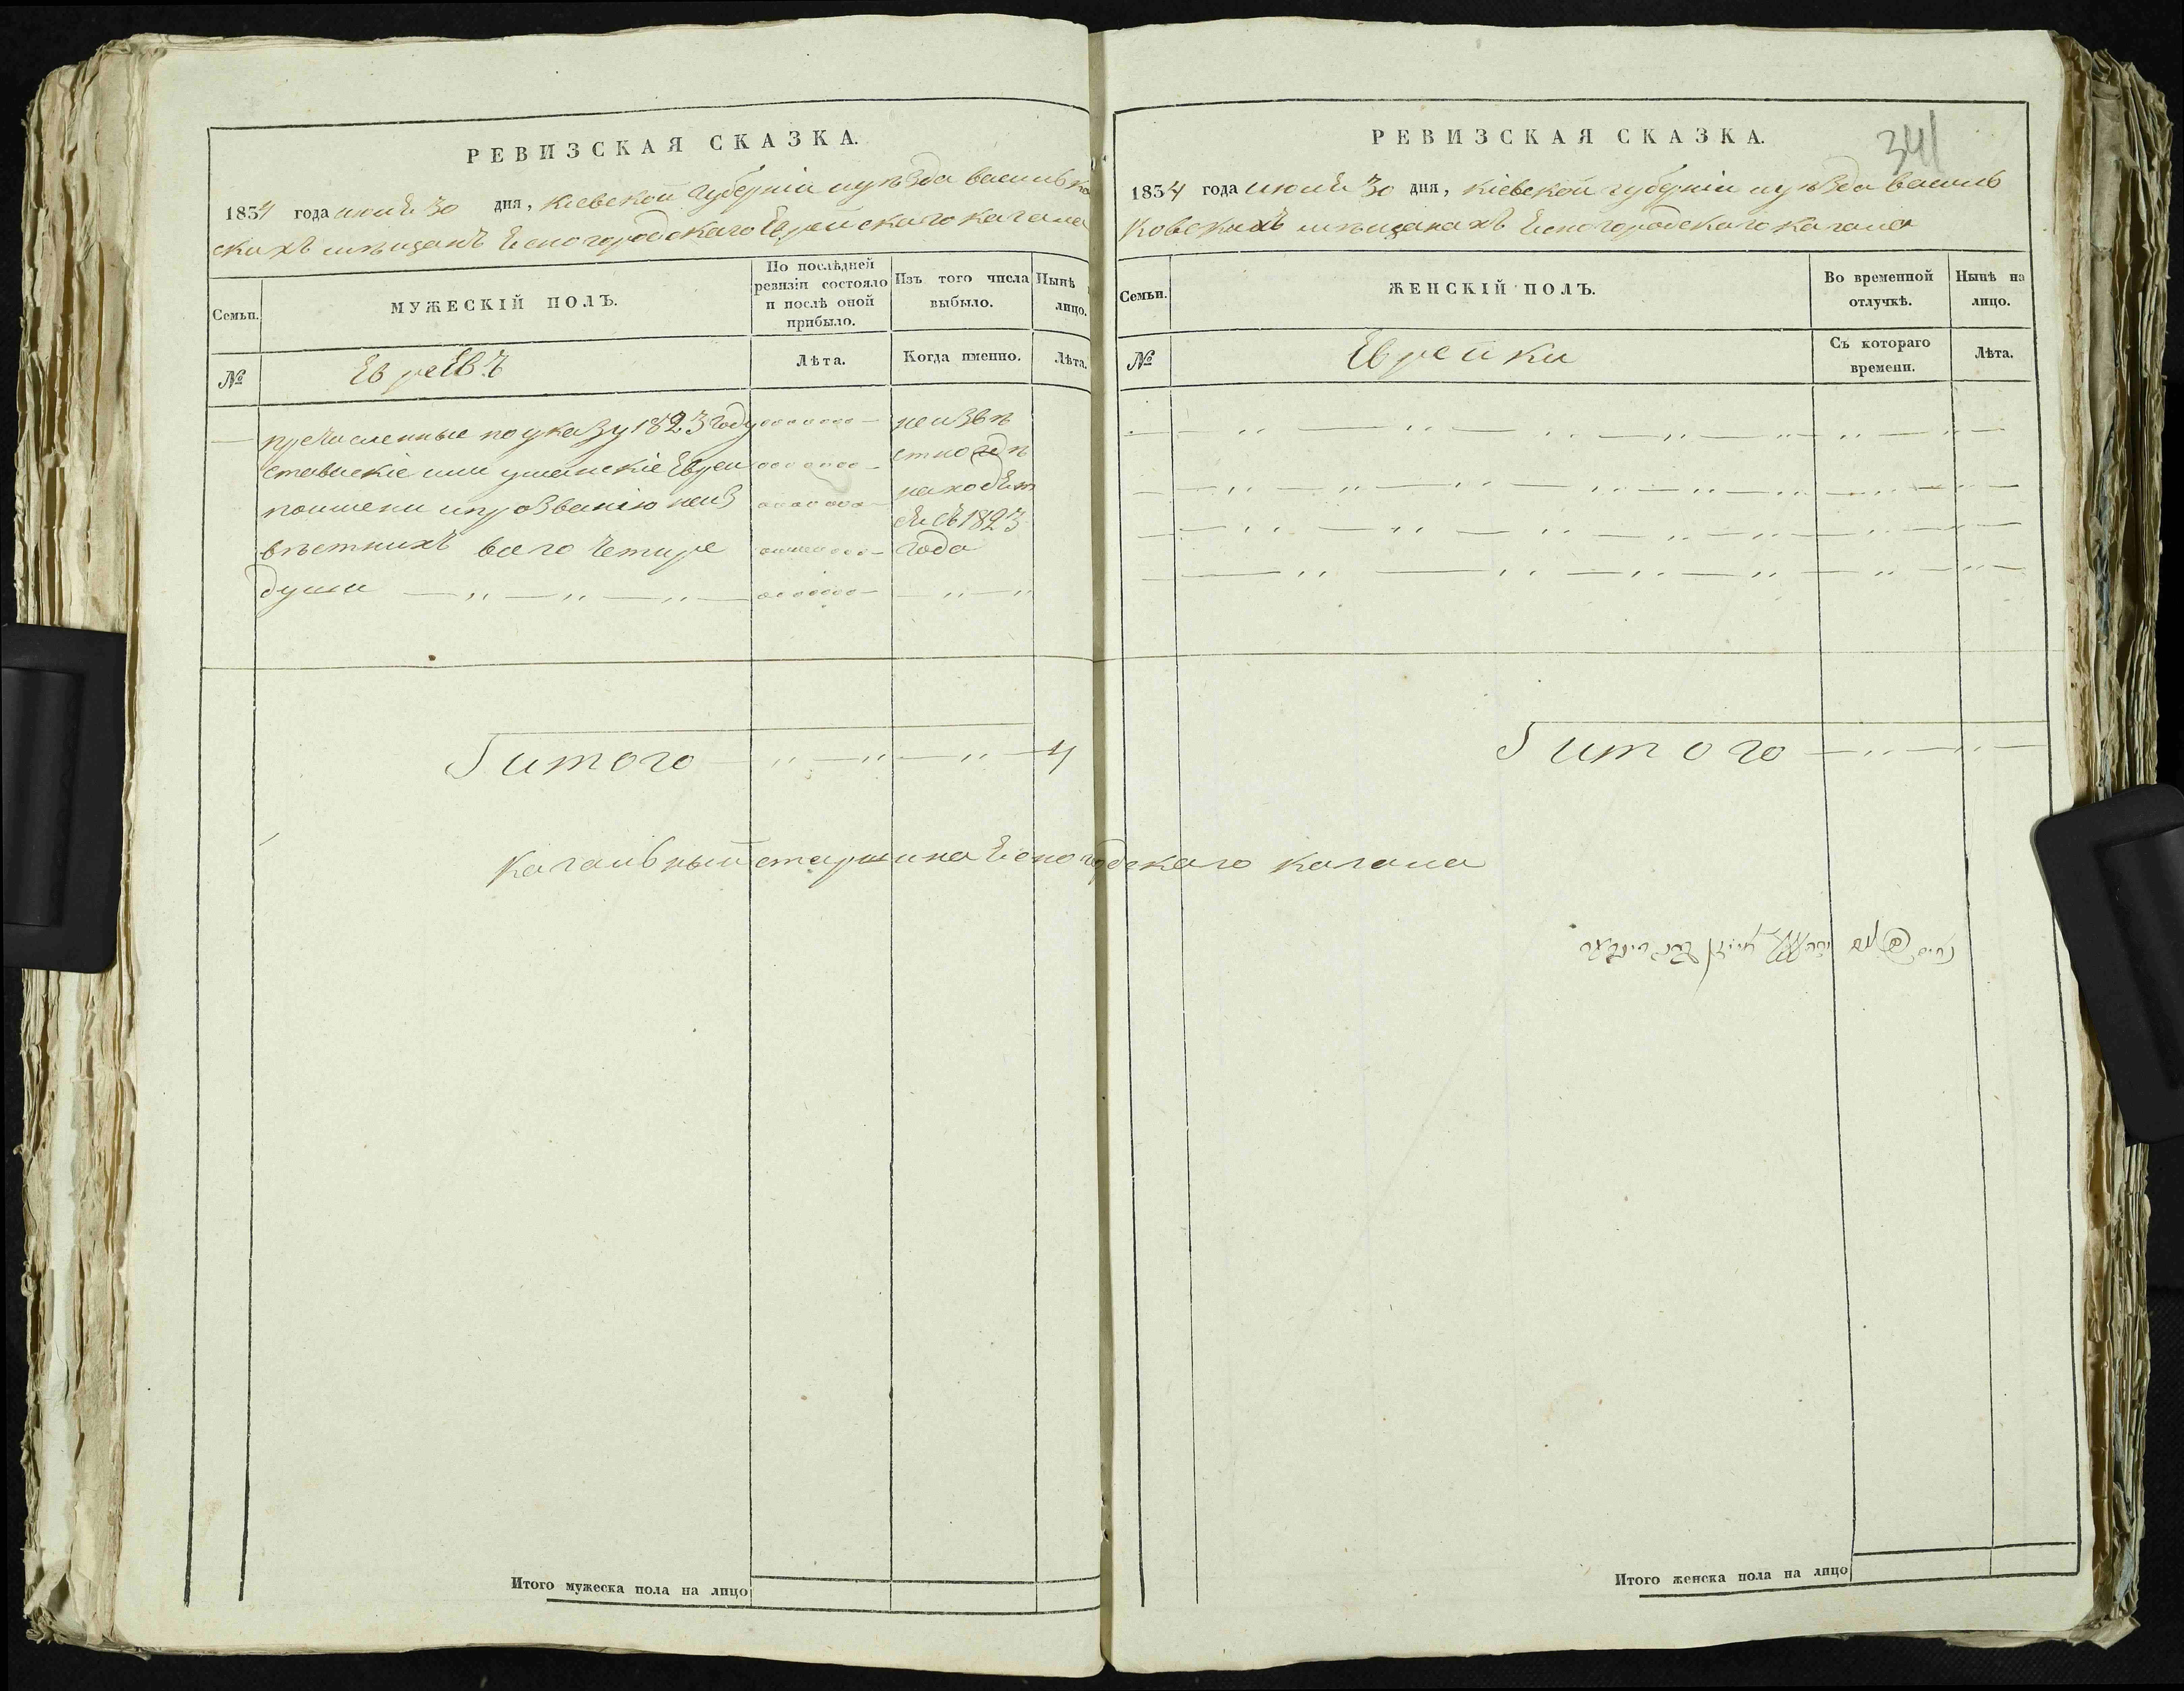 РЕВИЗСКАЯ СКАЗКА.
1834 года июня 30 дня, Кіевской губерніи и уѣзда васильков
скихъ мѣщанъ Ясногородскаго Еврейскаго кагала
Семьи.
МУЖЕСКІЙ ПОЛЪ.
По послѣдней ревизіи состояло и послѣ оной прибыло.
Изъ того числа выбыло.
Нынѣ лицо.
№
ЕвреЕвъ
Лѣта.
Когда именно.
Лѣта.
пречисленные по указу 1823 году
неизвѣ
ставискіе или уманскіе Евреи
стно гдѣ
поимени и прозванію неиз
находят
вѣстнихъ всего четире
ся съ 1823
души
года
Итого 4
Кагальный старшина Ясногодскаго Кагала
Итого мужеска пола на лицо
РЕВИЗСКАЯ СКАЗКА.
341
1834 года июня 30 дня, Кіевской губерніи и уѣзда василь
Ковскихъ мѣщанахъ Ясногородскаго Кагала
Семьи.
ЖЕНСКІЙ ПОЛЪ.
Во временной отлучкѣ.
Нынѣ на лицо.
№
Еврейки
Съ котораго времени.
Лѣта.
Итого
Итого женска пола на лицо